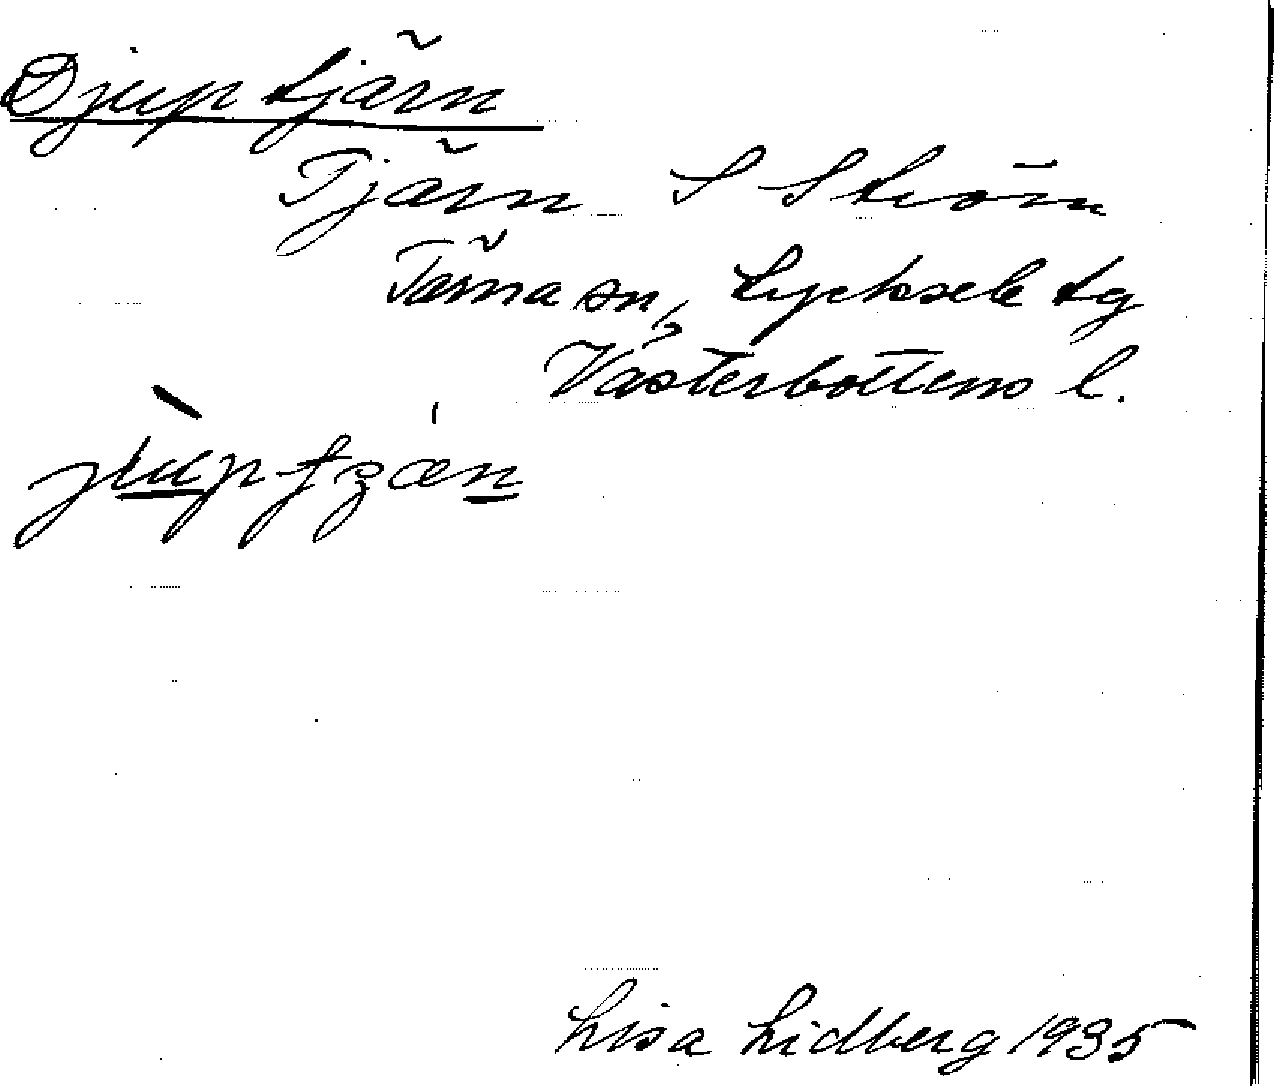 Djuptjärn
Tjärn S Ström
Tärna sn, Lycksele lg
Västerbottens l.
Lisa Lidberg 1935